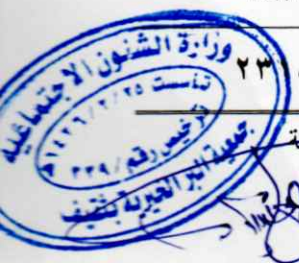 ٢٣١
وزارة الشئون الاجتماعية
تأسست ١٤٢٦/٢/٢٥هـ
ترخيص رقم / ٣٣٩
جمعية البر الخيرية بثقيف